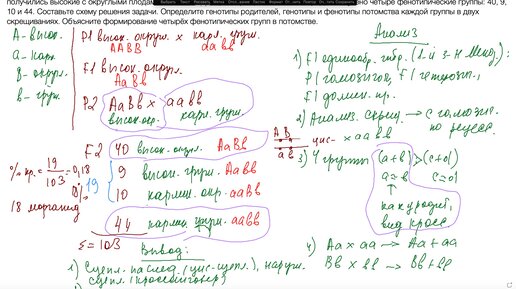 получились высокие с округлыми плодам
ено четыре фенотипических группы: 40, 9,
10 и 44. Составьте схему решения задачи. Определите генотипы родителей, генотипы и фенотипы потомства каждой группы в двух
скрещиваниях. Объясните формирование четырёх фенотипических групп в потомстве.
А- высок.
а- карл.
В- округл.
в- груш.
P1 высок. округл. x карл. груш.
AABB aabb
F1 высок. округл.
AaBb
P2 AaBb x aabb
высок. окр. карл. груш.
F2 40 высок. округл. AaBb
9 высок. груш. Aabb
10 карлик. окр. aaBb
44 карлик. груш. aabb
Σ = 103
% кр. = 19/103 = 0,18
19
18 морганид
Вывод:
1) Сцепл. наслед. (цис-сцепл.), наруш.
сцепл. (кроссинговер)
Анализ
1) F1 единообр. гибр. (1 и 3-Н Менд.)
P1 гомозигот, F1 гетерозиг.
F1 домин. пр.
2) Анализ. скрещ. → с гомозиг.
по рецесс.
AB
ab
цис- x aabb
3) 4 группы (a+b) > (c+d)
a=b c=d
как у родит.,
вид кросс
4) Aa x aa → Aa + aa
Bb x bb → Bb + bb